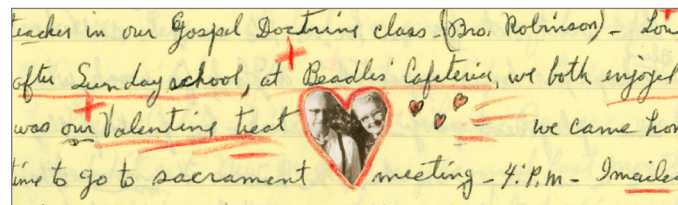 teacher in our Gospel Doctrine class - (Bro. Robinson) -
after Sunday school, at Beadles' Cafeteria, we both enjoyed
was our Valentine treat we came
time to go to sacrament meeting - 4: P.M. - I mailed